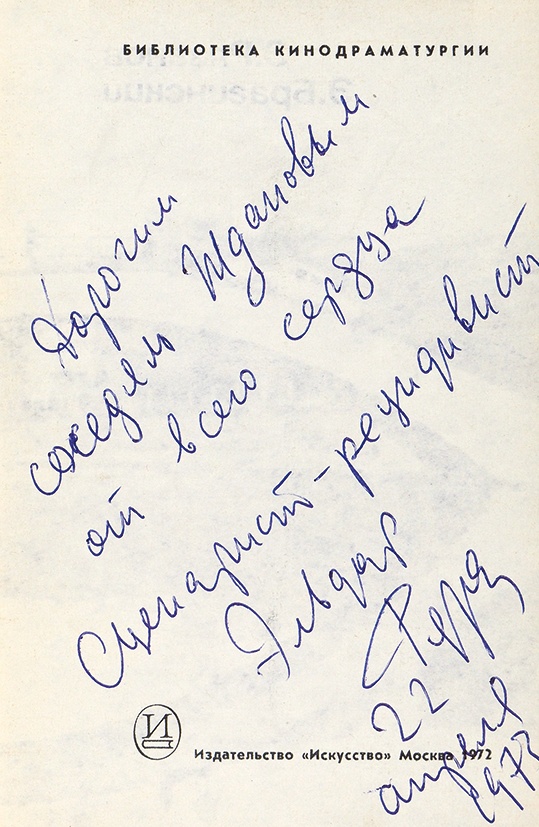 БИБЛИОТЕКА КИНОДРАМАТУРГИИ
Дорогим
соседям Ждановым
от всего сердца
Сценарист-рецидивист
Эльдар
22
апреля
1972
Издательство «Искусство» Москва 1972